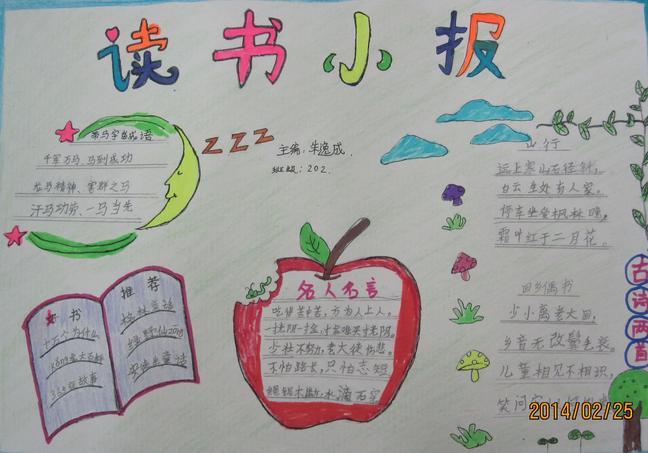 读书小报
主编：朱逸成.
班级：202.
带马字的成语
千军万马、马到成功
龙马精神、害群之马
汗马功劳、一马当先
好书
推荐
十万个为什么
格林童话
绿野仙踪
安徒生童话
365夜故事
名人名言
吃得苦中苦，方为人上人。
一寸光阴一寸金，寸金难买寸光阴。
少壮不努力，老大徒伤悲。
不怕路长，只怕志短
绳锯木断，水滴石穿
古诗两首
山行
远上寒山石径斜，
白云生处有人家。
停车坐爱枫林晚，
霜叶红于二月花。
回乡偶书
少小离老大回，
乡音无改鬓毛衰。
儿童相见不相识，
笑问客
2014/02/25